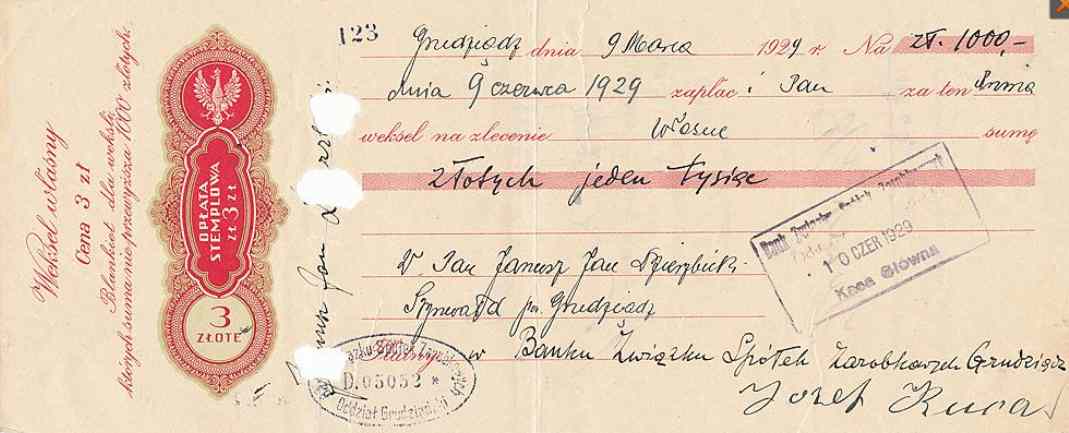 Weksel własny
Cena 3 zł
Blankiet dla weksli,
których suma nie przewyższa 1000 złotych.
OPŁATA
STEMPLOWA
zł 3 zł
3
ZŁOTE
123
Grudziądz dnia 9 Marca 1929 r Na zł. 1000,–
dnia 9 czerwca 1929 zapłac i Pan za ten
weksel na zlecenie własne sumę
złotych jeden tysiąc
Pan Janusz Jan
Grudziądz
w Banku Związku Spółek Zarobkowych Grudziądz
Józef
Bank Związku Spółek
10 CZER 1929
Kasa Główna
D.05052 *
Oddział Grudziądzki
Jan